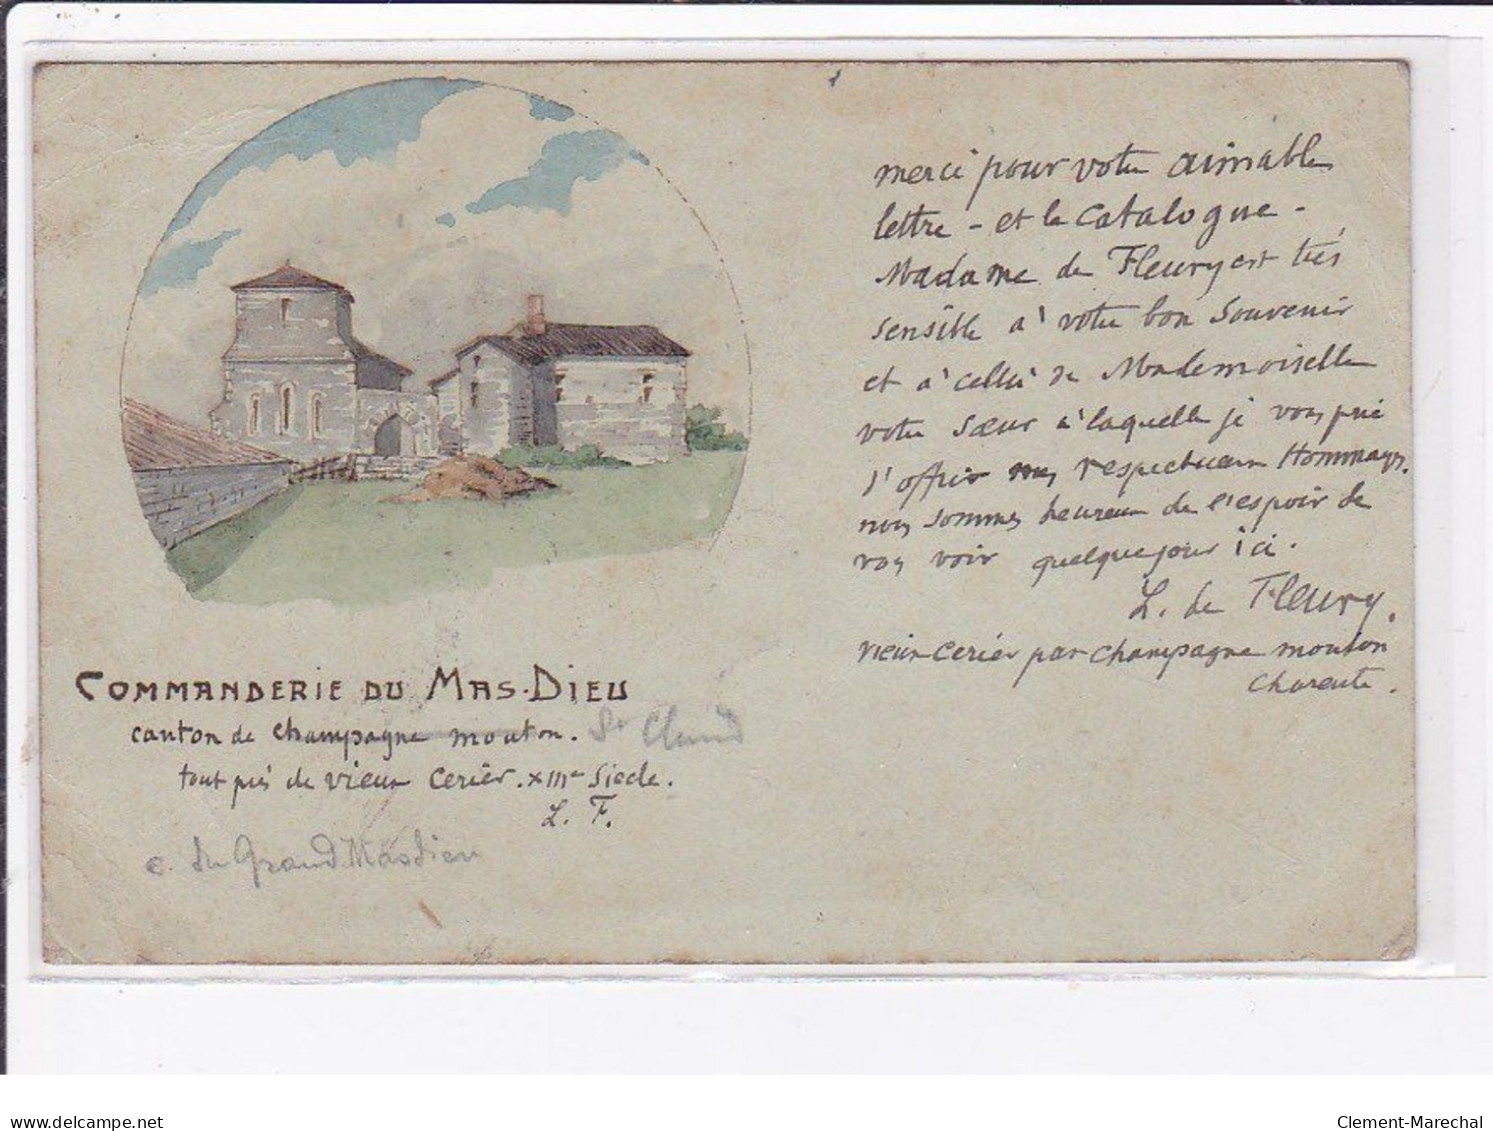 merci pour votre aimable
lettre - et le catalogue -
Madame de Fleury est très
sensible à votre bon souvenir
et à celui de Mademoiselle
votre sœur à laquelle je vous prie
d'offrir mes respectueux Hommages.
nous sommes heureux de l'espoir de
vous voir quelque jour ici.
L. de Fleury.
Vieux Cerier par champagne mouton
charente.
COMMANDERIE DU MAS-DIEU
canton de champagne mouton. St Claud
tout près de vieux Cerier. XIIIe Siecle.
L. F.
c. du Grand Masdieu
delcampe.net
Clement-Marechal